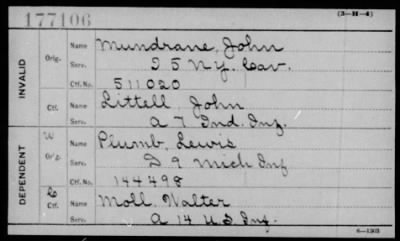 177106 (3-H-4)
INVALID
Orig. Name Mundrane, John
Serv. D 5 N.Y. Cav.
Ctf. No. 511020
Ctf. Name Littell, John
Serv. A 7 Ind. Inf.
DEPENDENT
W Name Plumb, Lewis
Orig. Serv. D 9 Mich Inf
Ctf. No. 144498
Ctf. Name Moll, Walter
Serv. A 14 U S Inf.
6-1303